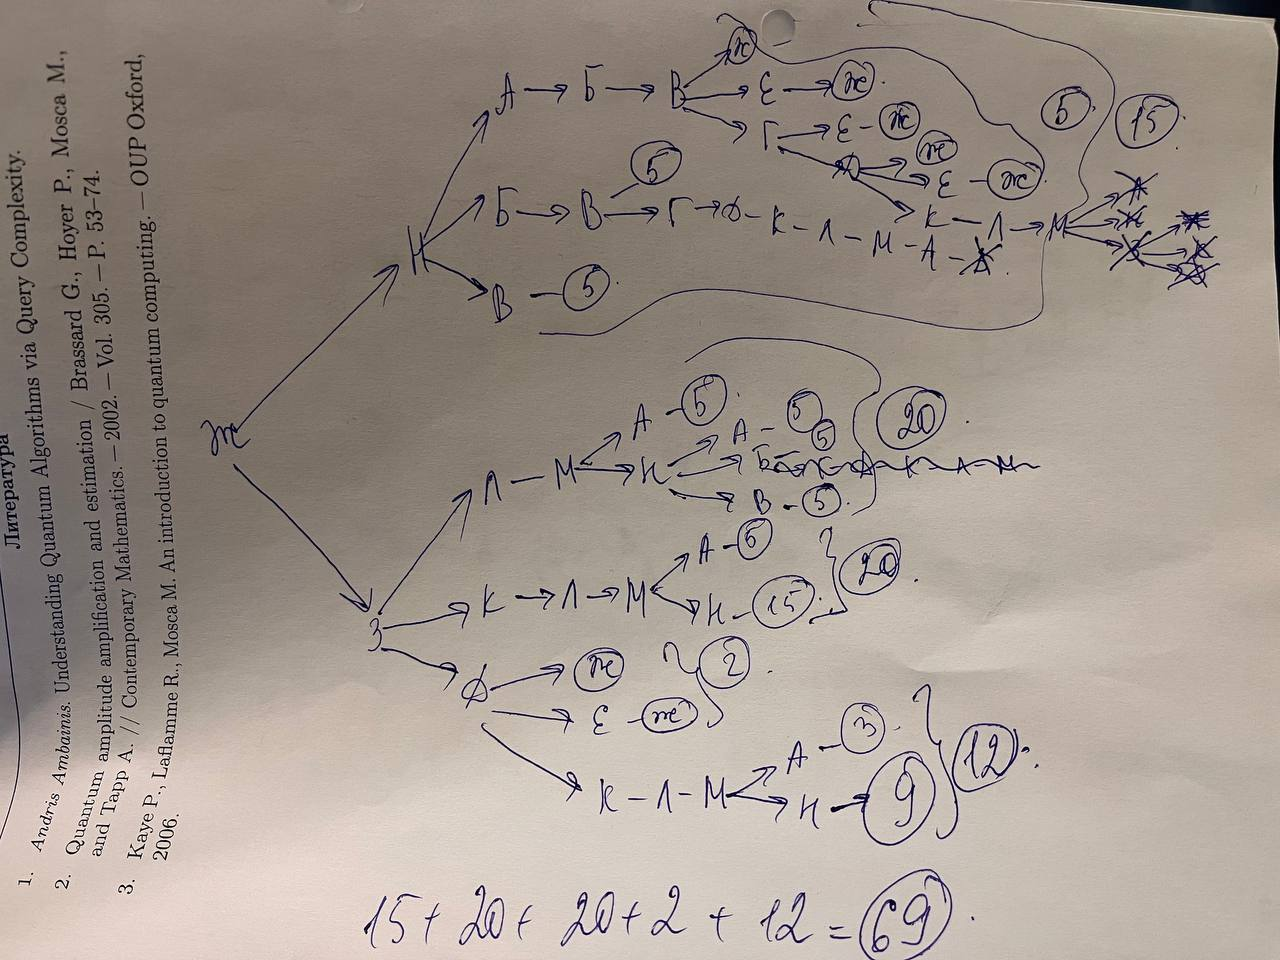 Литература
1. Andris Ambainis. Understanding Quantum Algorithms via Query Complexity.
2. Quantum amplitude amplification and estimation / Brassard G., Hoyer P., Mosca M.,
and Tapp A. // Contemporary Mathematics. — 2002. — Vol. 305. — P. 53–74.
3. Kaye P., Laflamme R., Mosca M. An introduction to quantum computing. — OUP Oxford,
2006.
ж
Н
А → Б → В → ж
Е → ж
Г → Е - ж
Д → ж
Е - ж
К - Л → М
5
15
Б → В 5
Г → Д - К - Л - М - А -
В - 5
З
Л - М
А - 5
Н
А - 5
Б 5
В - 5
20
К → Л → М
А - 5
Н - 15
20
Д → ж
Е - ж
2
К - Л - М
А - 3
Н - 9
12
15 + 20 + 20 + 2 + 12 = 69.